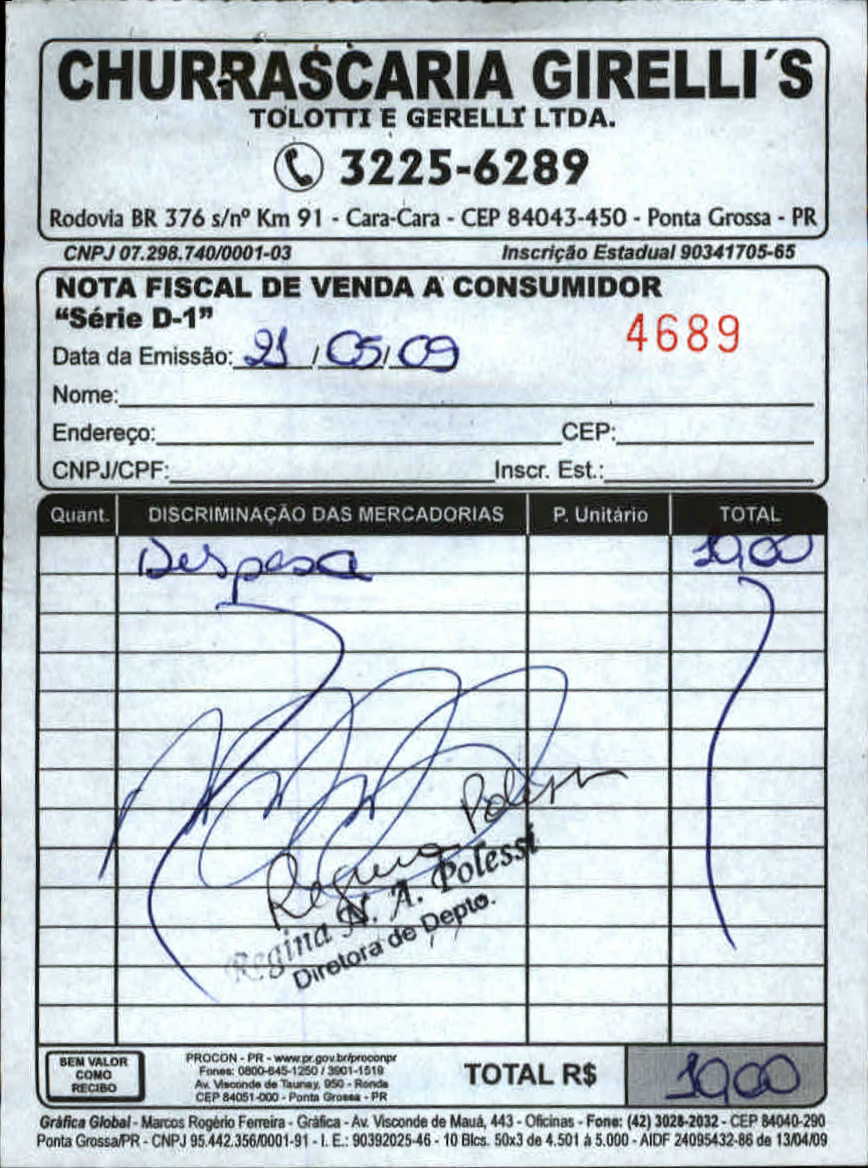 CHURRASCARIA GIRELLI´S
TOLOTTI E GERELLI LTDA.
3225-6289
Rodovia BR 376 s/nº Km 91 - Cara-Cara - CEP 84043-450 - Ponta Grossa - PR
CNPJ 07.298.740/0001-03 Inscrição Estadual 90341705-65
NOTA FISCAL DE VENDA A CONSUMIDOR
“Série D-1” 4689
Data da Emissão: 21 / 05 / 09
Nome:
Endereço: CEP:
CNPJ/CPF: Inscr. Est.:
Quant. DISCRIMINAÇÃO DAS MERCADORIAS P. Unitário TOTAL
Despesa 10,00
Regina Polessi
Regina N. A. Polessi
Diretora de Depto.
SEM VALOR
COMO
RECIBO
PROCON - PR - www.pr.gov.br/proconpr
Fones: 0800-645-1250 / 3901-1519
Av. Visconde de Taunay, 950 - Ronda
CEP 84051-000 - Ponta Grossa - PR
TOTAL R$ 10,00
Gráfica Global - Marcos Rogério Ferreira - Gráfica - Av. Visconde de Mauá, 443 - Oficinas - Fone: (42) 3028-2032 - CEP 84040-290
Ponta Grossa/PR - CNPJ 95.442.356/0001-91 - I. E.: 90392025-46 - 10 Blcs. 50x3 de 4.501 à 5.000 - AIDF 24095432-86 de 13/04/09